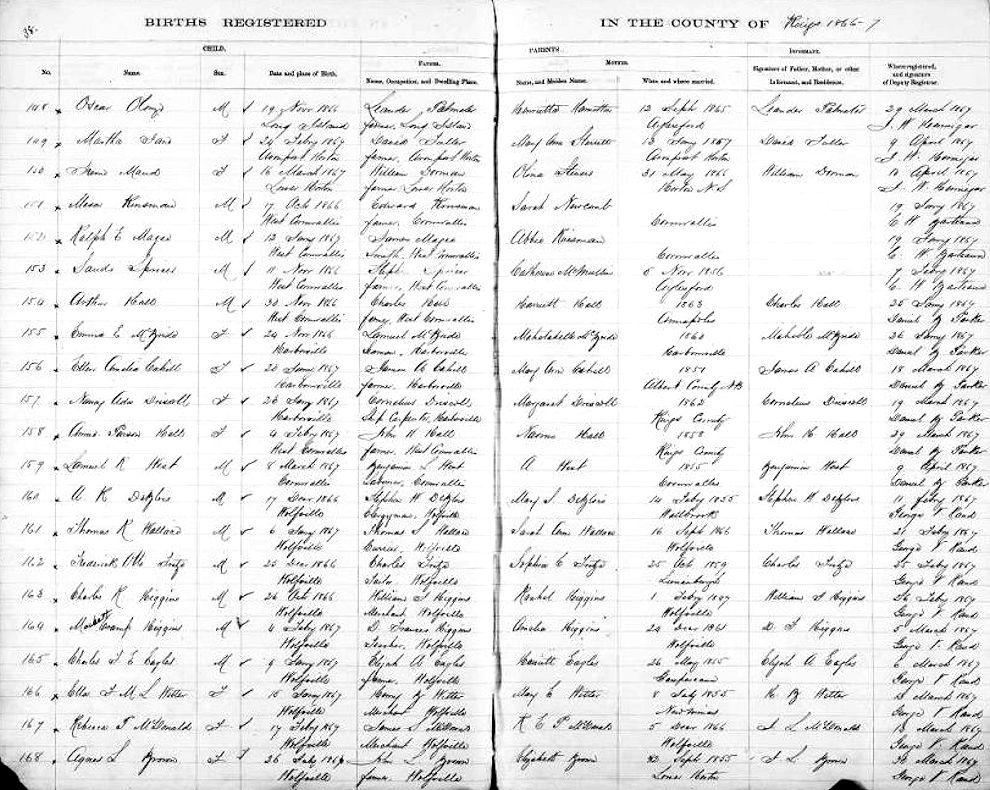 38.
BIRTHS REGISTERED IN THE COUNTY OF Kings 1866-7
CHILD. PARENTS. INFORMANT.
FATHER. MOTHER.
No. Name. Sex. Date and place of Birth. Name, Occupation, and Dwelling Place. Name, and Maiden Name. When and where married. Signature of Father, Mother, or other Informant, and Residence. Where registered, and signature of Deputy Registrar.
148 Oscar Alonzo M 19 Novr 1866 Leander Palmeter Henrietta Hamilton 12 Sept 1865 Leander Palmeter 29 March 1867
Long Island farmer Long Island Aylesford J. W. Hennigar
149 Martha Jane F 24 Feby 1867 David Fuller Mary Ann Starritt 13 Jany 1857 David Fuller 9 April 1867
Avonport Horton farmer, Avonport Horton Avonport Horton J W Hennigar
150 Maud F 16 March 1867 William Dorman 31 May 1866 William Dorman 18 April 1867
Lower Horton farmer Lower Horton Horton N.S J. W. Hennigar
151 Kinsman M 17 Oct 1866 Edward Kinsman Sarah Newcomb 19 Jany 1867
West Cornwallis farmer, Cornwallis Cornwallis C H
152 Ralph E Magee M 12 Jany 1867 James Magee Abbie Kinsman 19 Jany 1867
West Cornwallis Smith, West Cornwallis Cornwallis C. H
153 Spicer M 11 Novr 1866 Spicer Catherine McMullen 5 Novr 1856 7 Feby 1867
West Cornwallis farmer, West Cornwallis Aylesford C H
154 Arthur Hall M 30 Novr 1866 Charles Hall Harriett Hall 1863 Charles Hall 25 Jany 1867
West Cornwallis farmer, West Cornwallis Annapolis Daniel Parker
155 Emma E McBride F 24 Novr 1866 Samuel McBride McBride 1860 McBride 26 Jany 1867
Harborville Harborville Harborville Daniel Parker
156 Ellen Amelia Cahill F 20 Jany 1867 James A Cahill Mary Ann Cahill 1851 James A Cahill 18 March 1867
Harborville farmer. Harborville Albert County NB Daniel Parker
157 Nancy Ada Driscoll F 26 Jany 1867 Cornelius Driscoll Margaret Driscoll 1862 Cornelius Driscoll 19 March 1867
Harborville Ship Carpenter, Harborville Kings County Daniel Parker
158 Annie Parson Hall F 4 Feby 1867 John H Hall Naomi Hall 1858 John H Hall 29 March 1867
West Cornwallis farmer. West Cornwallis Kings County Daniel Parker
159 Samuel R West M 8 March 1867 Benjamin L West A West 1855 Benjamin West 9 April 1867
Cornwallis Laborer, Cornwallis Cornwallis Daniel Parker
160 A K M 17 Decr 1866 Stephen W Mary S 14 Feby 1855 Stephen W 11 Feby 1867
Wolfville Clergyman, Wolfville George V Rand
161 Thomas R Wallace M 6 Jany 1867 Thomas S Wallace Sarah Ann Wallace 16 Sept 1866 Thomas Wallace 21 Feby 1867
Wolfville Currier, Wolfville Wolfville George V Rand
162 Frederick Otto M 25 Decr 1866 Charles Sophia E 25 Oct 1859 Charles 25 Feby 1867
Wolfville Tailor. Wolfville Lunenburgh George V Rand
163 Charles R Higgins M 26 Octr 1866 William J Higgins Rachel Higgins 1 Feby William J Higgins 26 Feby 1867
Wolfville Merchant Wolfville Wolfville George V Rand
164 Cramp Higgins M 4 Feby 1867 D. Frances Higgins Amelia Higgins 24 Decr 1861 D. F Higgins 5 March 1867
Wolfville Teacher, Wolfville Wolfville George V Rand
165 Charles F E Eagles M 9 Jany 1867 Elijah A Eagles Harriett Eagles 26 May 1855 Elijah A Eagles 6 March 1867
Wolfville farmer, Wolfville Gaspereau George V Rand
166 Ella F M L Witter F 15 Jany 1867 Henry B Witter Mary E Witter 8 July 1855 H B Witter 12 March 1867
Wolfville Merchant Wolfville George V Rand
167 Rebecca T McDonald F 17 Feby 1867 James S McDonald R E P McDonald 5 Decr 1866 J. L McDonald 13 March 1867
Wolfville Merchant Wolfville Wolfville George V. Rand
168 Agnes L Brown F 26 July 1867 John L Brown Elizabeth Brown 22 Sept 1855 J L Brown 26 March 1867
Wolfville farmer Wolfville Lower Horton George V Rand